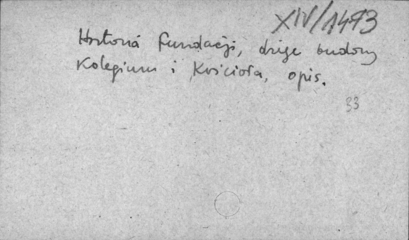 XIV/1473
Historia Fundacji, dzieje budowy
Kolegium i Kościoła, opis.
33